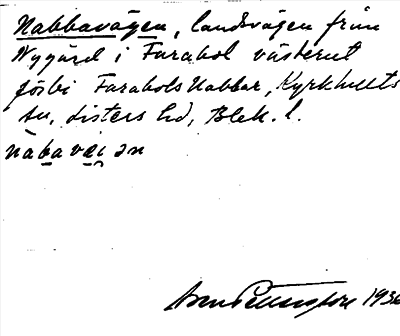 Nabbavägen, landsvägen från
Nygård i Farabol västerut
förbi Farabols Nabbar, Kyrkhults
sn, Listers hd, Blek. l.
nàbavɛ̀i ̯ən
1936